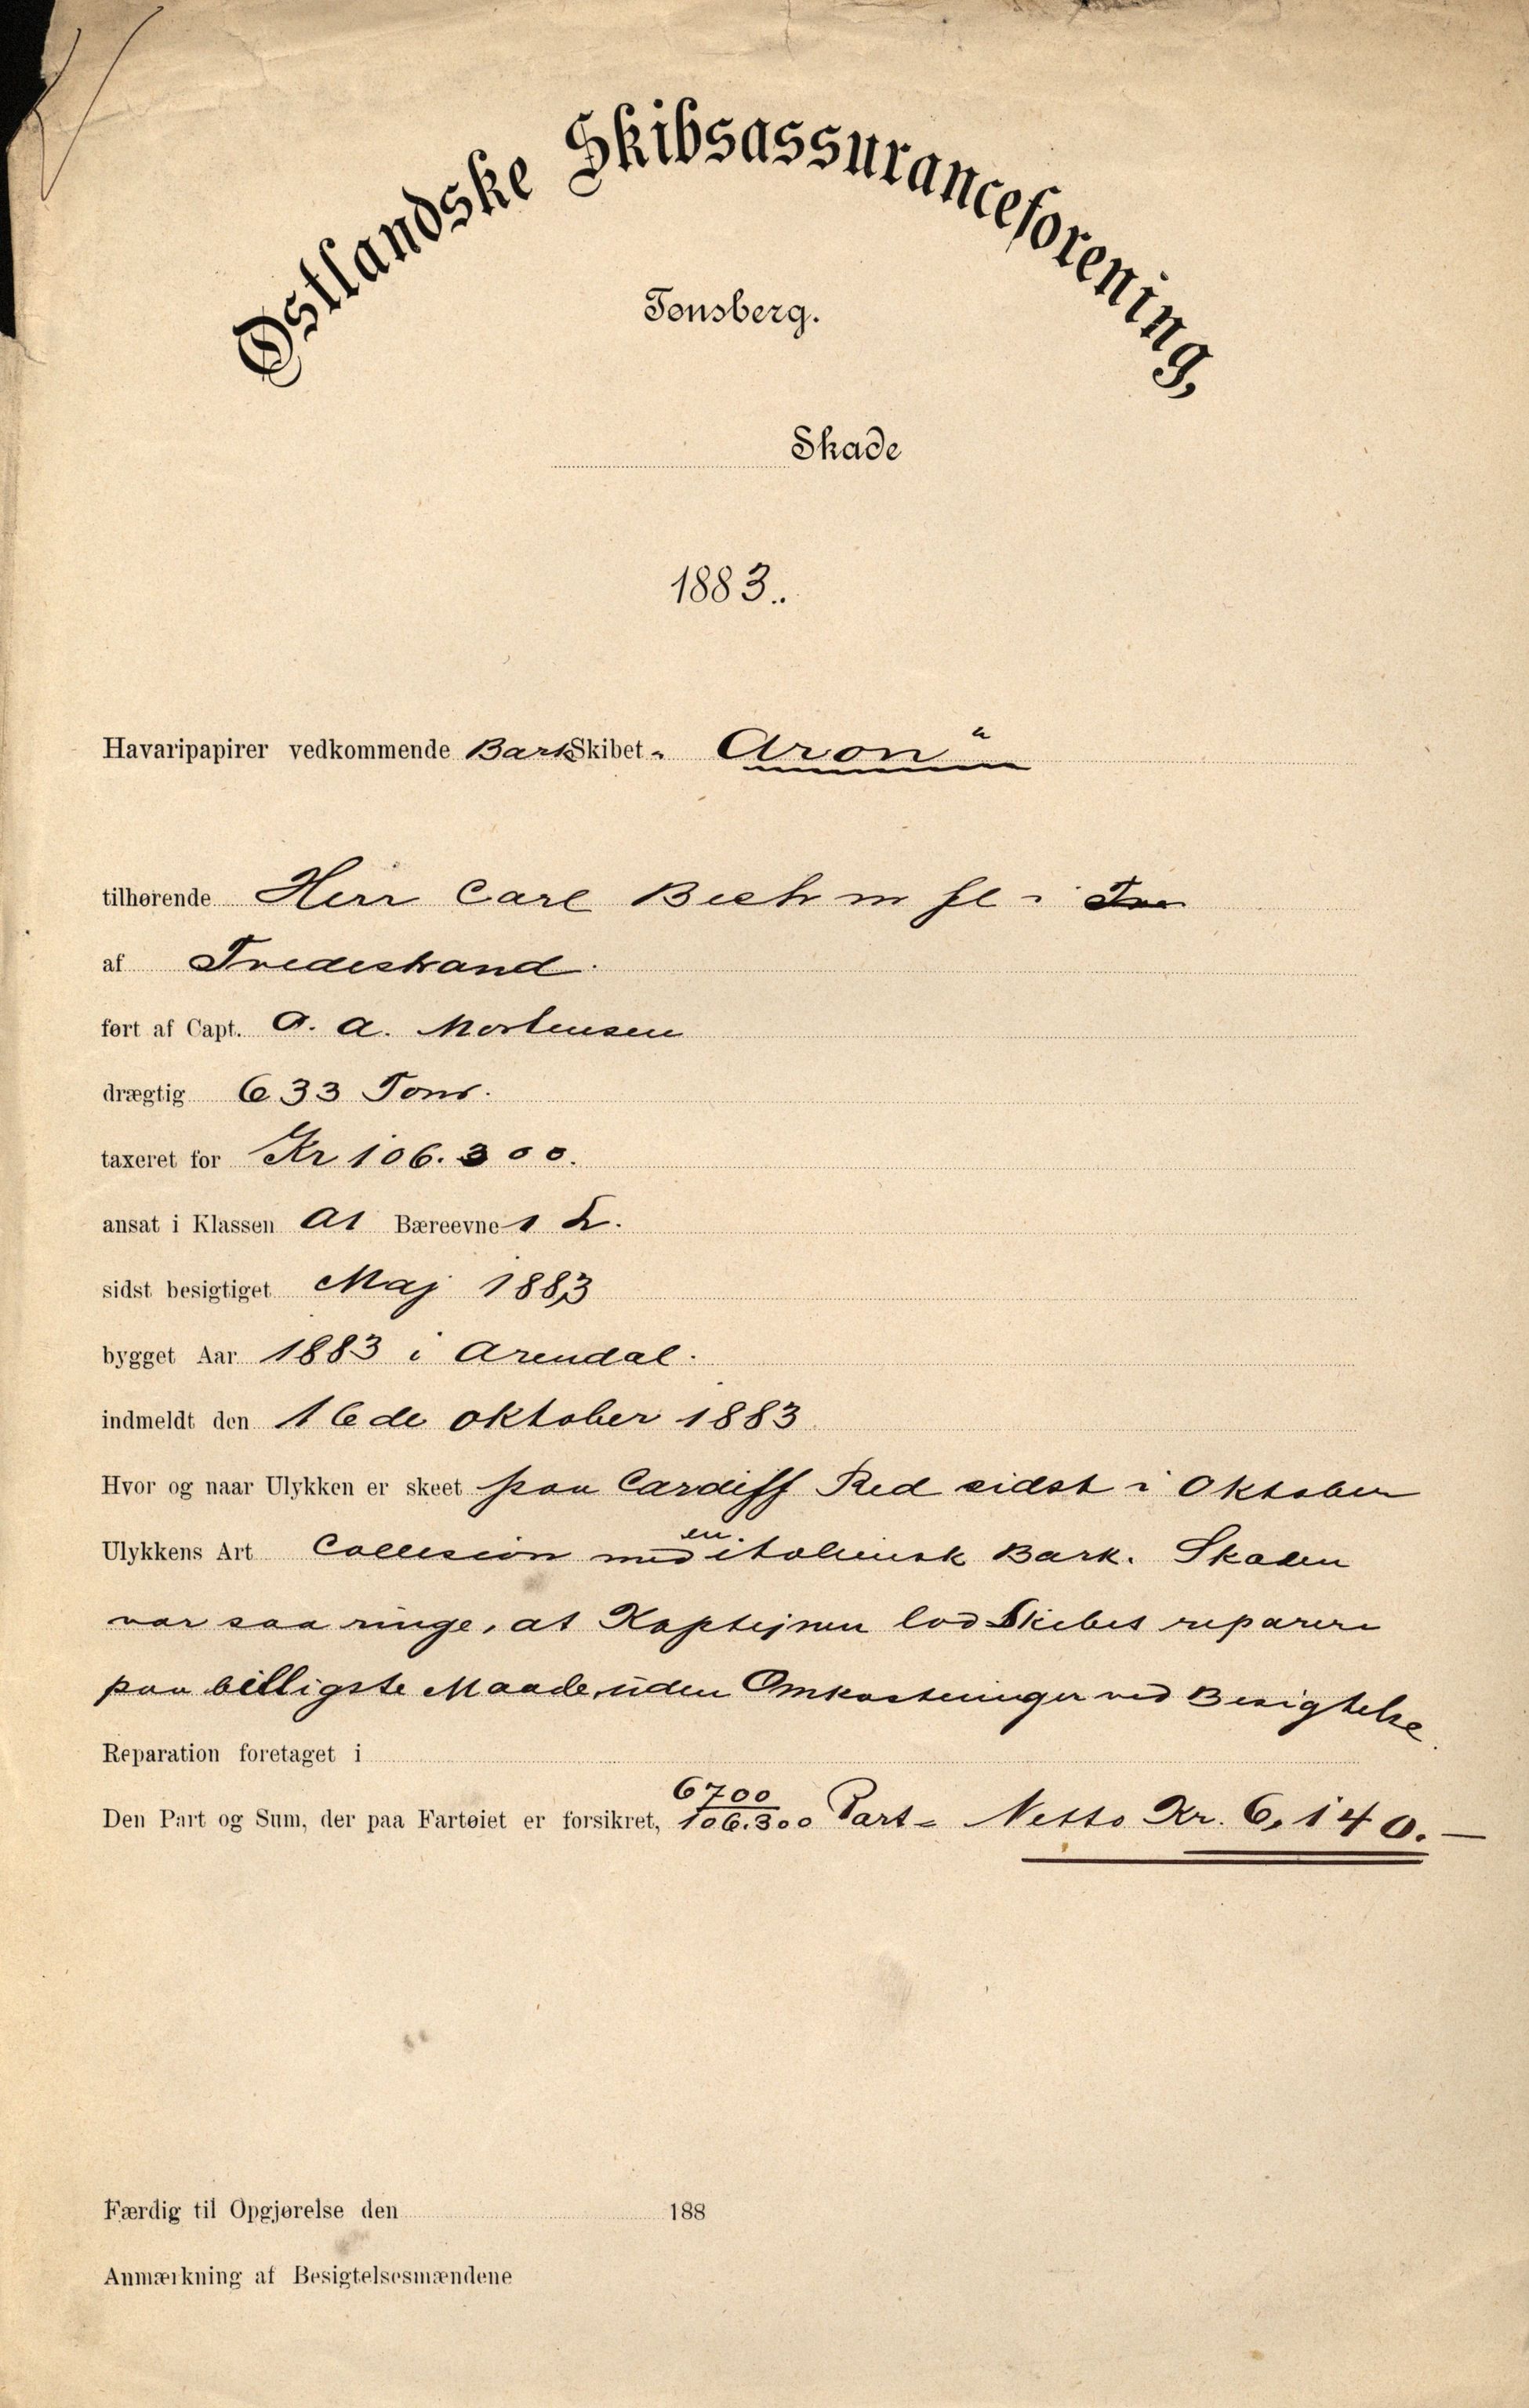 Østlandske Skibsassuranceforening,
Tønsberg.
Skade
1883.
Havaripapirer vedkommende Bark Skibet „Aron“
tilhørende Herr Carl i
af Tvedestrand.
ført af Capt. O. A. Mortensen
drægtig 633 Tons.
taxeret for Kr 106.300.
ansat i Klassen A1 Bæreevne 1
sidst besigtiget Maj 1883
bygget Aar 1883 i Arendal.
indmeldt den 16de Oktober 1883
Hvor og naar Ulykken er skeet paa Cardiff Red sidst i Oktober
Ulykkens Art Collision med en italiensk Bark. Skaden
var saa ringe, at Kaptejnen lod Skibet reparere
paa billigste Maade, uden Omkostninger ved Besigtelse.
Reparation foretaget i
Den Part og Sum, der paa Fartøiet er forsikret, 6700/106.300 Part = Netto Kr. 6,140.—
Færdig til Opgjørelse den 188
Anmærkning af Besigtelsesmændene